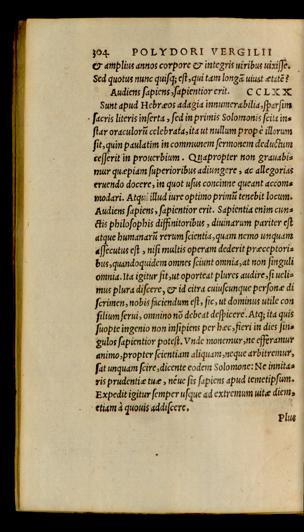 304. POLYDORI VERGILII
& amplius annos corpore & integris uiribus uixisse.
Sed quotus nunc quisq; est, qui tam longā uiuat ætatē?
Audiens sapiens, sapientior erit. CCLXX
Sunt apud Hebræos adagia innumerabilia, sparsim
sacris literis inserta, sed in primis Solomonis scita in-
star oraculorū celebrata, ita ut nullum propè illorum
sit, quin paulatim in communem sermonem deductum
cesserit in prouerbium. Quapropter non grauabi-
mur quæpiam superioribus adiungere, ac allegorias
eruendo docere, in quot usus concinne queant accom-
modari. Atqui illud iure optimo primū tenebit locum.
Audiens sapiens, sapientior erit. Sapientia enim cun-
ctis philosophis diffinitoribus, diuinarum pariter est
atque humanarū rerum scientia, quam nemo unquam
assecutus est, nisi multis operam dederit præceptori-
bus, quandoquidem omnes sciunt omnia, at non singuli
omnia. Ita igitur fit, ut oporteat plures audire, si ueli-
mus plura discere, & id citra cuiuscunque personæ di
scrimen, nobis faciendum est, sic, ut dominus utile con
silium serui, omnino nō debeat despicere. Atq; ita quis
suopte ingenio non insipiens per hæc, fieri in dies sin-
gulos sapientior potest. Vnde monemur, ne efferamur
animo, propter scientiam aliquam, neque arbitremur,
sat unquam scire, dicente eodem Solomone: Ne innita-
ris prudentiæ tuæ, néue sis sapiens apud temetipsum.
Expedit igitur semper usque ad extremum uitæ diem,
etiam à quouis addiscere.
Plus